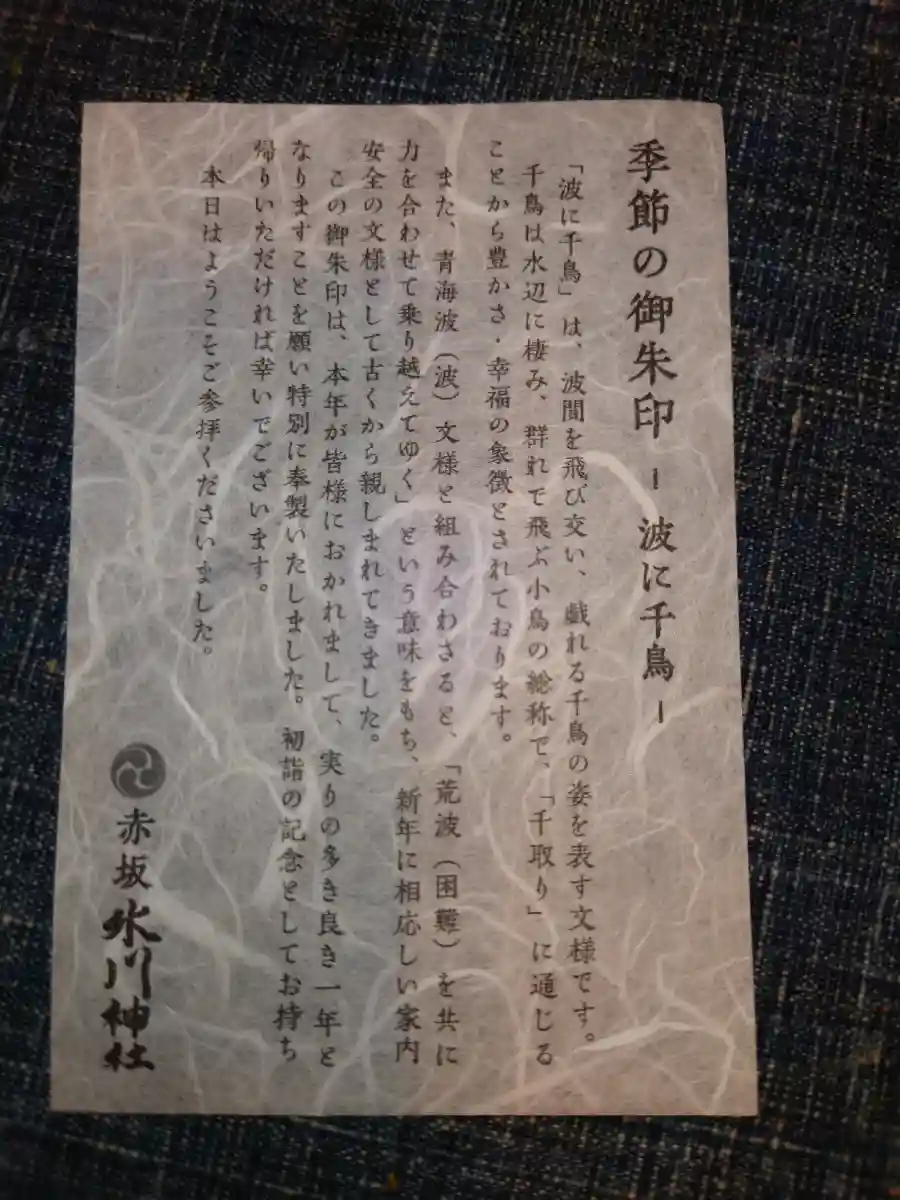 季節の御朱印 － 波に千鳥 －
「波に千鳥」は、波間を飛び交い、戯れる千鳥の姿を表す文様です。
千鳥は水辺に棲み、群れで飛ぶ小鳥の総称で、「千取り」に通じる
ことから豊かさ・幸福の象徴とされております。
また、青海波（波）文様と組み合わさると、「荒波（困難）を共に
力を合わせて乗り越えてゆく」という意味をもち、新年に相応しい家内
安全の文様として古くから親しまれてきました。
この御朱印は、本年が皆様におかれまして、実りの多き良き一年と
なりますことを願い特別に奉製いたしました。初詣の記念としてお持ち
帰りいただければ幸いでございます。
本日はようこそご参拝くださいました。
赤坂氷川神社